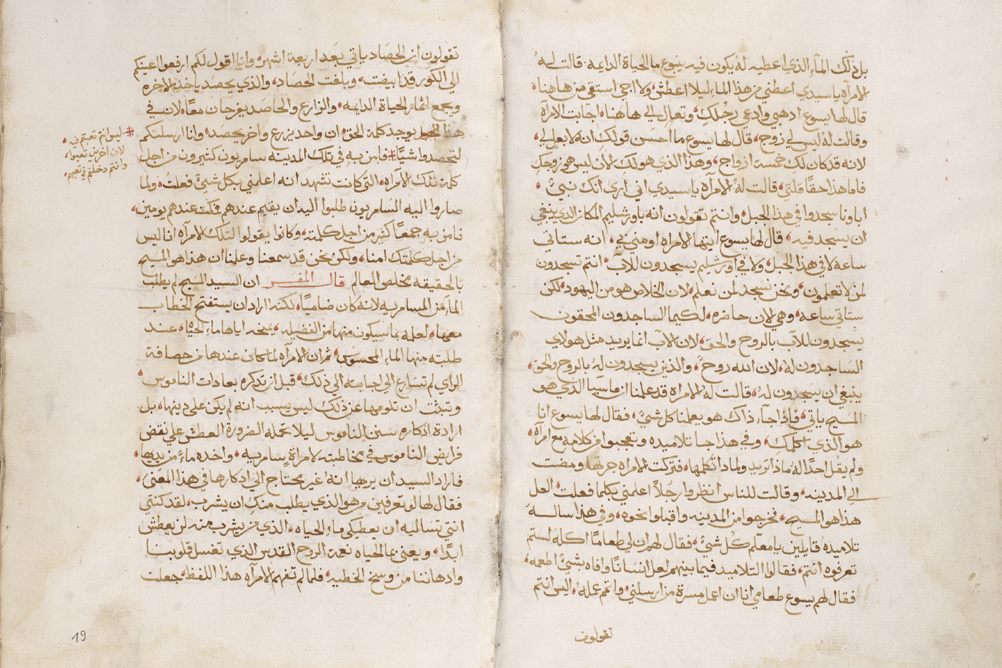 بل ذلك المآ الذي اعطيه له يكون فيه ينبوع ما الحياة الدايمه قالت له
الامرآه يا سيدي اعطني من هذا المآء ليلا اعطش ولا اجى استقي من هاهنا
قال لها يسوع ادهبي وادعي رجلك وتعالي الى هاهنا اجابت الامرآه
وقالت له ليس لي زوج قال لها يسوع ما احسن قولك انه لا بعل لي
لانه قد كان لك خمسة ازواج وهذا الذي هو لك الان ليس هو زوجك
فاما هذا حقا قلتي قالت له الامرآه يا سيدي اني ارى انك نبي
اباونا سجدوا في هذا الجبل وانتم تقولون انه باورشليم المكان الذي ينبغي
ان يسجد فيه قال لها يسوع ايتها الامراه اومني بي انه ستاتي
ساعه لا في هذا الجبل ولا في اورشليم يسجدون للآب انتم تسجدون
لمن لا تعلمون ونحن نسجد لمن نعلم لان الخلاص هو من اليهود لكن
ستاتي ساعه وهي الان حاضره لكيما الساجدون المحقون
يسجدون للآب بالروح والحق لان الآب انما يريد مثل هولاي
الساجدون له لان الله روح والذين يسجدون له بالروح والحق
ينبغي ان يسجدون له قالت له الامراة قد علمنا ان ماسيا الذي هو
المسيح ياتي فاذا جآ ذاك هو يعلمنا كل شي فقال لها يسوع انا
هو الذي اكلمك وفي هذا جا تلاميده وتعجبوا من كلامه مع امرآه
ولم يقل احدًا له ماذا تريد ولماذا تكلمها فتركت الامراه جرتها ومضت
الى المدينه وقالت للناس انظروا رجُلاً اعلمني بكلما فعلت لعل
هذا هو المسيح فخرجوا من المدينه واقبلوا نحوه وفي هذا ساله
تلاميده قايلين يا معلم كل شي فقال لهم ان لي طعامًا اكله لستم
تعرفوه انتم فقالوا التلاميد فيما بينهم لعل انسانًا وافاه بشي اطعمه
فقال لهم يسوع طعامي انا ان اعمل مسرة من ارسلني واتم عمله اليس انتم
تقولون
تقولون ان الحصاد ياتي بعد اربعة اشهر وانا اقول لكم ارفعوا اعينكم
الى الكور قد ابيضت وبلغت الحصاد والذي يحصد ياخد الاجره
ويجمع اثمار الحياة الدايمه والزارع والحاصد يفرحان معًا لان في
هذا يوجد كلمة الحق ان واحد يزرع واخر يحصد وانا ارسلتكم
لتحصدوا شيًا فامن به في تلك المدينه سامريون كثيرون من اجل
كلمة تلك الامراه التي كانت تشهد انه اعلمني بكل شي فعلت ولما
صاروا اليه السامريون طلبوا اليه ان يقيم عندهم فمكث عندهم يومين
فامن به جمعًا كثير من اجل كلمته وكانوا يقولوا لتلك الامرآه انا ليس
من اجل كلمتك امنا ولكن نحن قد سمعنا وعلمنا ان هذا هو المسيح
بالحقيقه مخلص العالم قال المفسر ان السيد المسيح لم يطلب
المآ من السامريه لانه كان ضاميا لكنه اراد ان يستفتح الخطاب
معها لعلمه بما سيكون منها من الفضيله بمنحه اياها ماء الحياه عند
طلبته منها الماء المحسوس ثم ان الامرآه لما كان عندها من حصافة
الراي لم تسارع الى اجابته الى ذلك قبل ان تذكره بعادات الناموس
ويثبت ان تلومها عن ذلك ليس بسبب انه لم يكن على دينها بل
ارادة ادكاره بسنن الناموس ليلا تحمله الضرورة العطش على نقض
فرايض الناموس في مخاطبته لامراةٍ سامريه واخده ماءً من يديها
فاراد السيد ان يريها انه غير محتاج الى ادكارها في هذا المعنى
فقال لها لو تعرفين من هو الذي يطلب منك ان يشرب لقد كنتي
انتي تساليه ان يعطيك ماء الحياه الذي من يشرب منه لن يعطش
ابدًا ويعني بما الحياه نعمة الروح القدس الذي تغسل قلوبنا
وادهاننا من وسخ الخطيه فلما لم تفهم الامراه هذا اللفظ جعلت
ليس انتم تعبتم فيه
لان اخرين تعبوا
وانتم دخلتم في تعبهم
19